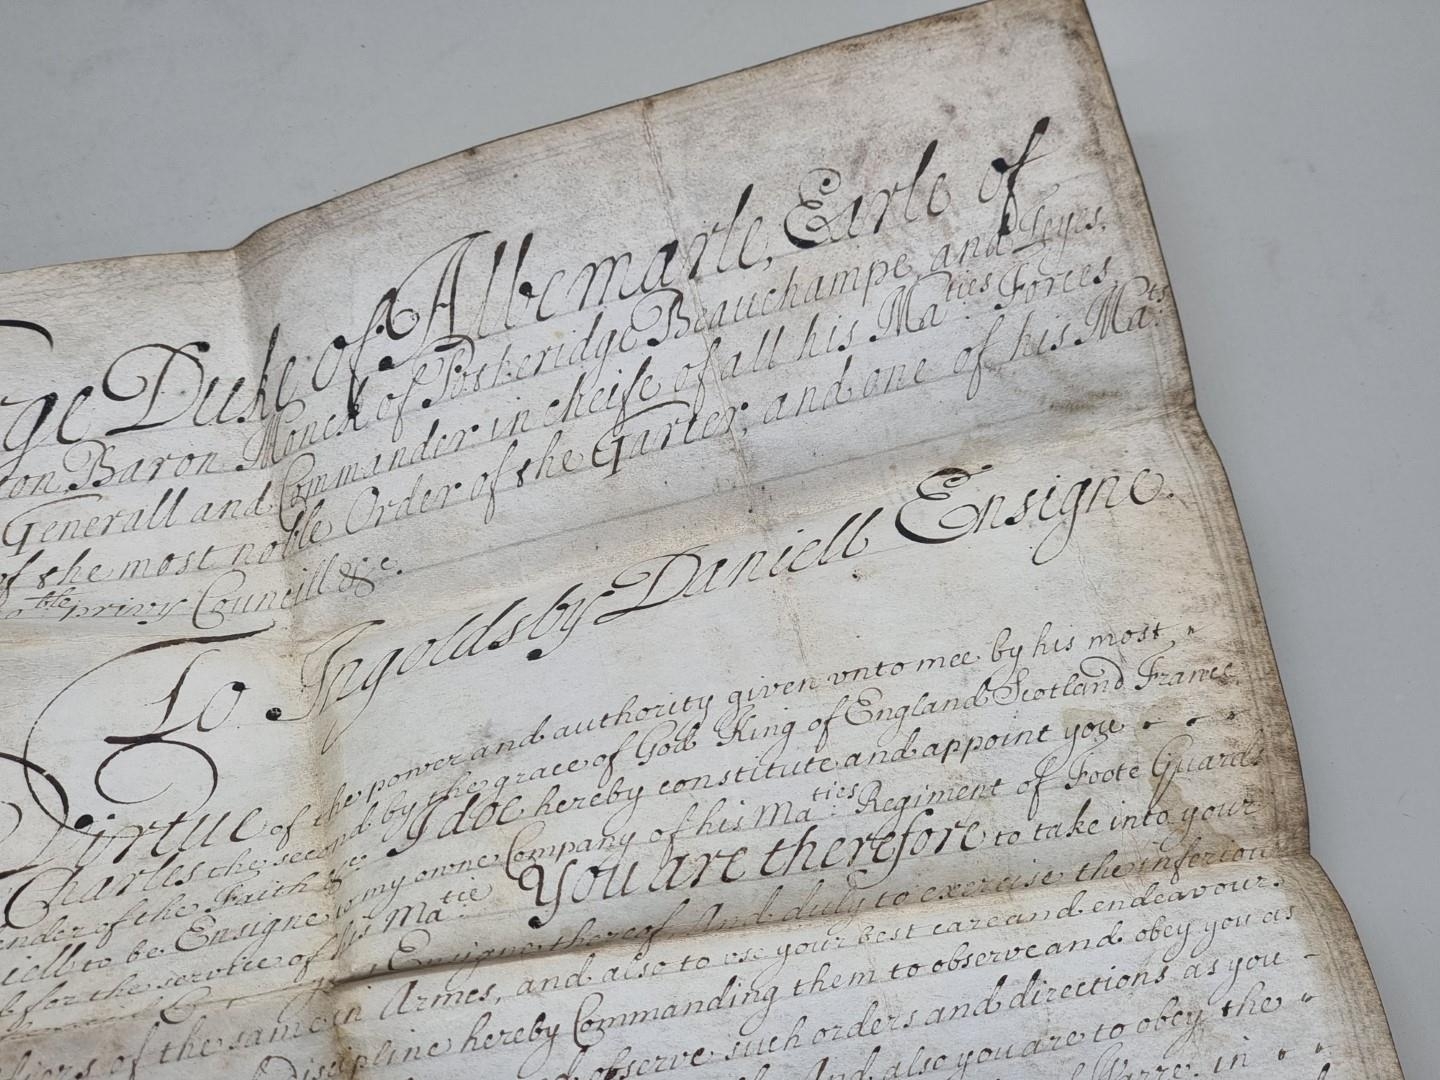 ge Duke of Albemarle, Earle of
ton Baron Monck of Potheridge Beauchampe, and Teyes,
Generall and Commander in cheife of all his Ma:ties Forces,
of the most noble Order of the Garter, and one of his Ma:ts
ble privy Councill &c.
To Ingoldsby Daniell Ensigne.
Virtue of the power and authority given vnto mee by his most
Charles the second by the grace of God King of England Scotland France
ender of the Faith &c I doe hereby constitute and appoint you
iell to be Ensigne to my owne Company of his Ma:ties Regiment of Foote Guards
for the service of his Ma:tie You are therefore to take into your
Ensigne thereof And duly to exercise the inferiour
of the same in Armes, and also to vse your best care and endeavour
Discipline hereby Commanding them to observe and obey you as
observe such orders and directions as you
And also you are to obey the
Warre. in